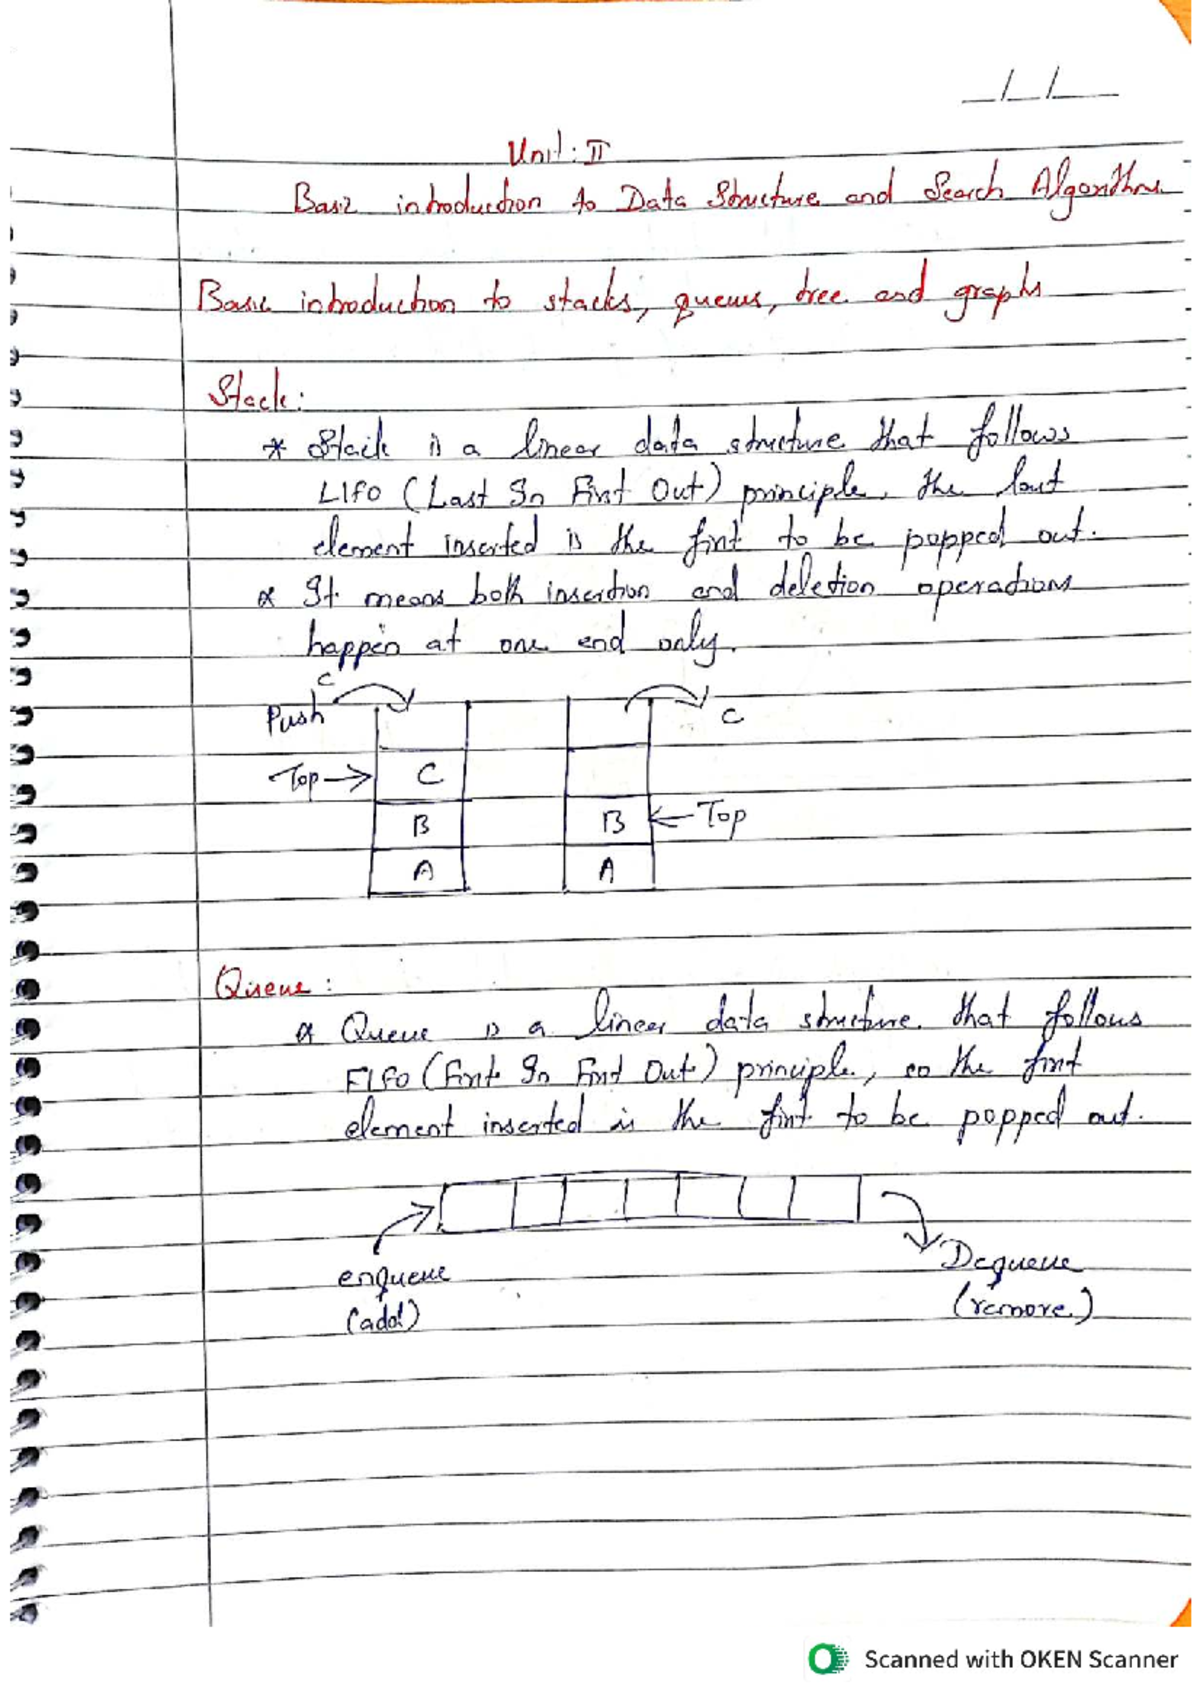 __/__/____
Unit : II
Basic introduction to Data Structure and Search Algorithms
Basic introduction to stacks, queues, tree and graphs
Stack :
* Stack is a linear data structure that follows
LIFO (Last In First Out) principle, the last
element inserted is the first to be popped out.
* It means both insertion and deletion operations
happen at one end only.
C
Push
C
Top → C
B
B ← Top
A
A
Queue :
* Queue is a linear data structure that follows
FIFO (First In First Out) principle, so the first
element inserted is the first to be popped out.
enqueue
(add)
Dequeue
(remove)
Scanned with OKEN Scanner